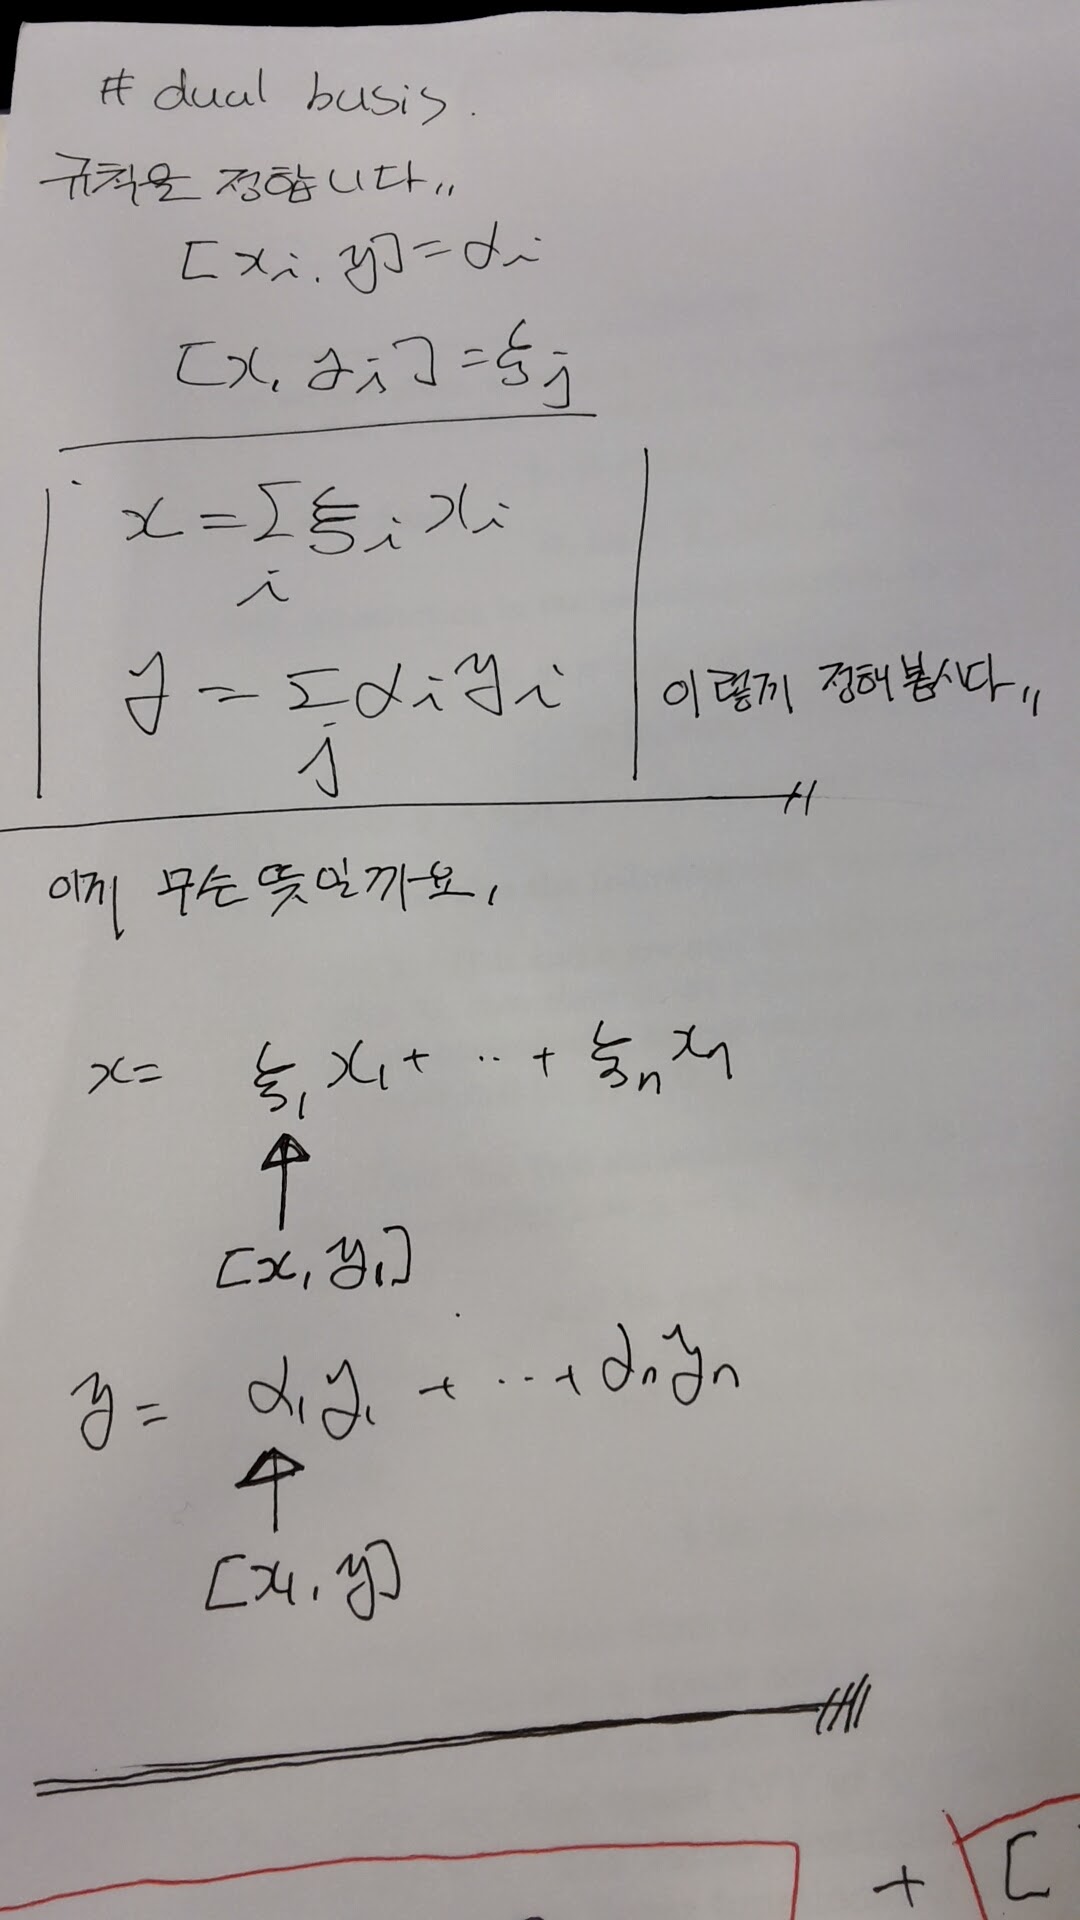 # dual busis.
규칙을 정합니다,,
[xᵢ, y] = αᵢ
[x, yᵢ] = ξⱼ
x = Σ ξᵢ xᵢ
i
y = Σ αᵢ yᵢ
j
이렇게 정해봅시다,,
이게 무슨 뜻일까요,
x = ξ₁ x₁ + ‥ + ξₙ xₙ
[x, y₁]
y = α₁ y₁ + ‥ + αₙ yₙ
[x₁, y]
+ [